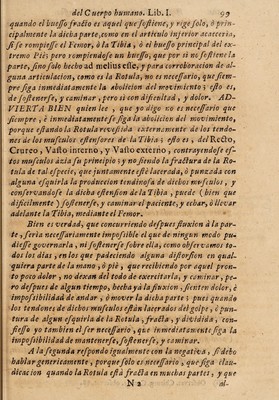 del Cuerpo humano. Lib. I. 99
quando el huesso fracto es aquel que sostiene, y rige solo, ò prin-
cipalmente la dicha parte, como en el articulo inferior acaeceria,
si se rompiesse el Femor, ò la Tibia, ò el huesso principal del ex-
tremo Piè; pero rompiendose un huesso, que por si ni sostiene la
parte, sino solo hecho ad melius esse, y para corroboracion de al-
guna articulacion, como es la Rotula, no es necessario, que siem-
pre siga inmediatamente la abolicion del movimiento; esto es,
de sostenerse, y caminar, pero si con dificultad, y dolor. AD-
VIERTA BIEN quien lee, que yo digo no es necessario que
siempre, è inmediatamente se siga la abolicion del movimiento,
porque estando la Rotula revestida externamente de los tendo-
nes de los musculos estensores de la Tibia; esto es, del Recto,
Crureo, Vasto interno, y Vasto externo, contrayendose es-
tos musculos àzia su principio; y no siendo la fractura de la Ro-
tula de tal especie, que juntamente estè lacerada, ò punzada con
alguna esquirla la produccion tendinosa de dichos musculos, y
conservandose la dicha estension de la Tibia, puede (bien que
dificilmente) sostenerse, y caminar el paciente, y echar, ò llevar
adelante la Tibia, mediante el Femor.
Bien es verdad, que concurriendo despues fluxion à la par-
te, seria necessariamente impossible el que de ningun modo pu-
diesse governarla, ni sostenerse sobre ella, como observamos to-
dos los dias, en los que padeciendo alguna distorsion en qual-
quiera parte de la mano, ò piè, que recibiendo por aquel pron-
to poco dolor, no dexan del todo de exercitarla, y caminar, pe-
ro despues de algun tiempo, hecha yà la fluxion, sienten dolor, è
impossibilidad de andar, ò mover la dicha parte; pues quando
los tendones de dichos musculos estàn lacerados del golpe, ò pun-
tura de algun esquirla de la Rotula, fracta, y dividida, con-
fiesso yo tambien el ser necessario, que inmediatamente siga la
impossibilidad de mantenerse, sostenerse, y caminar.
A la segunda respondo igualmente con la negativa, si debo
hablar genericamente, porque solo es necessario, que siga clau-
dicacion quando la Rotula està fracta en muchas partes, y que
N 2 al-